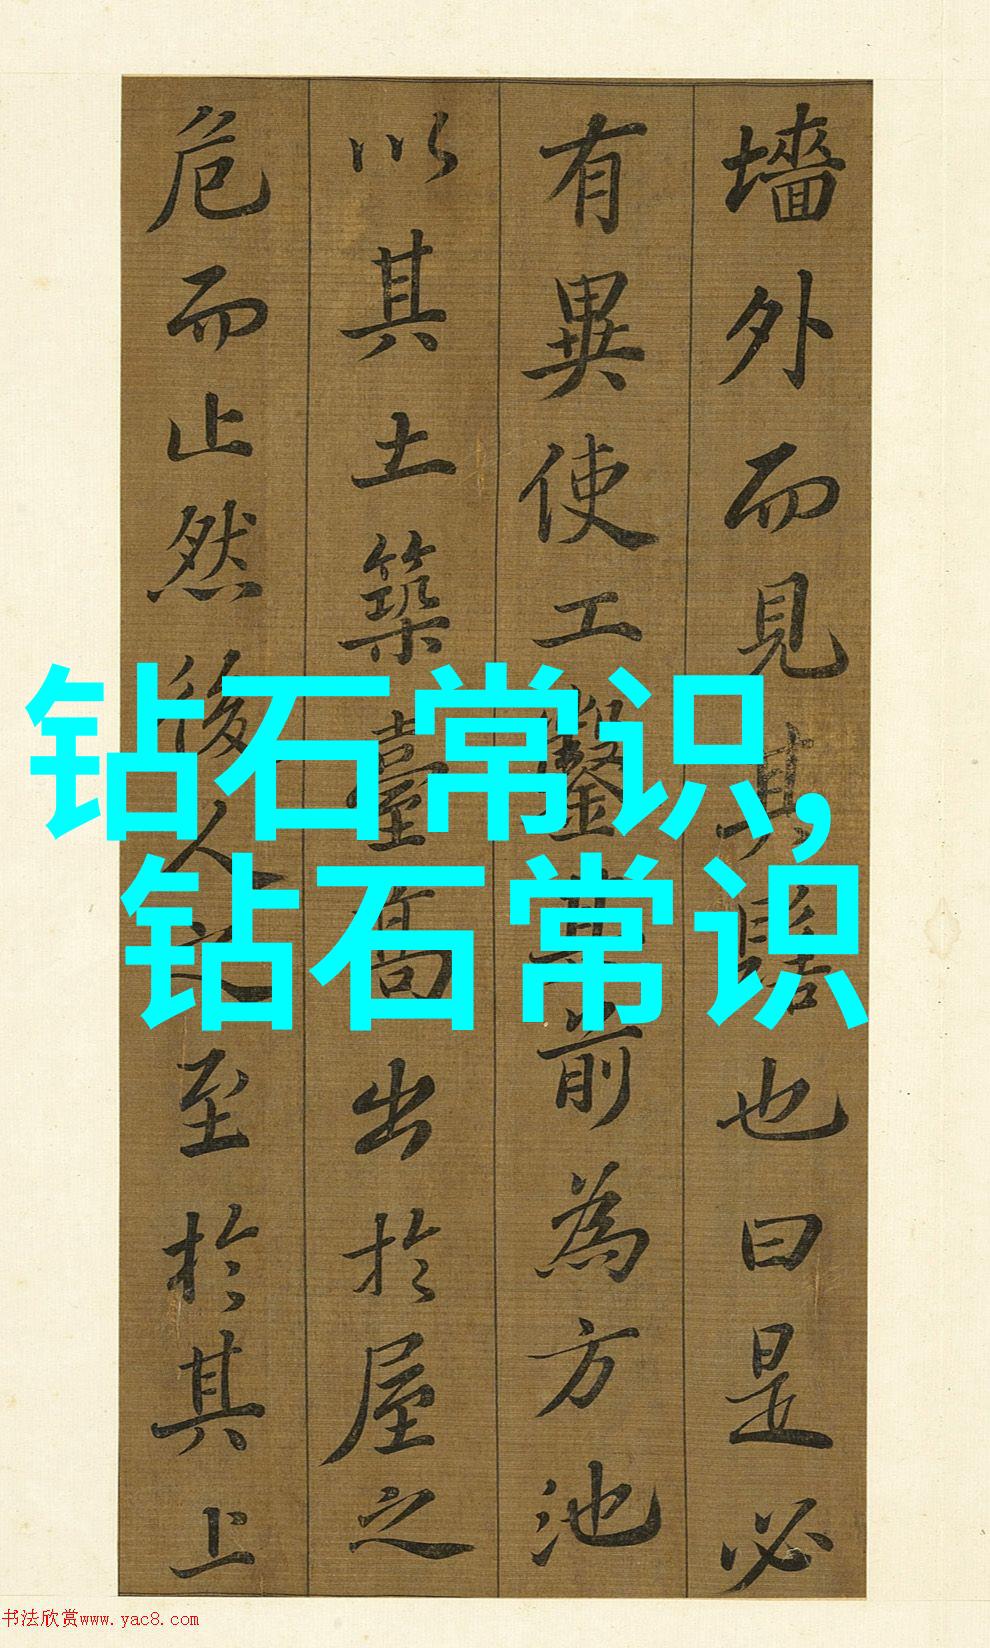 墻外而見其髻也曰是必
有異使工鑿其前為方池
以其土築臺高出於屋之
危而止然後人之至於其上
钻石常识,
钻石常识
书法欣赏www.yac8.com